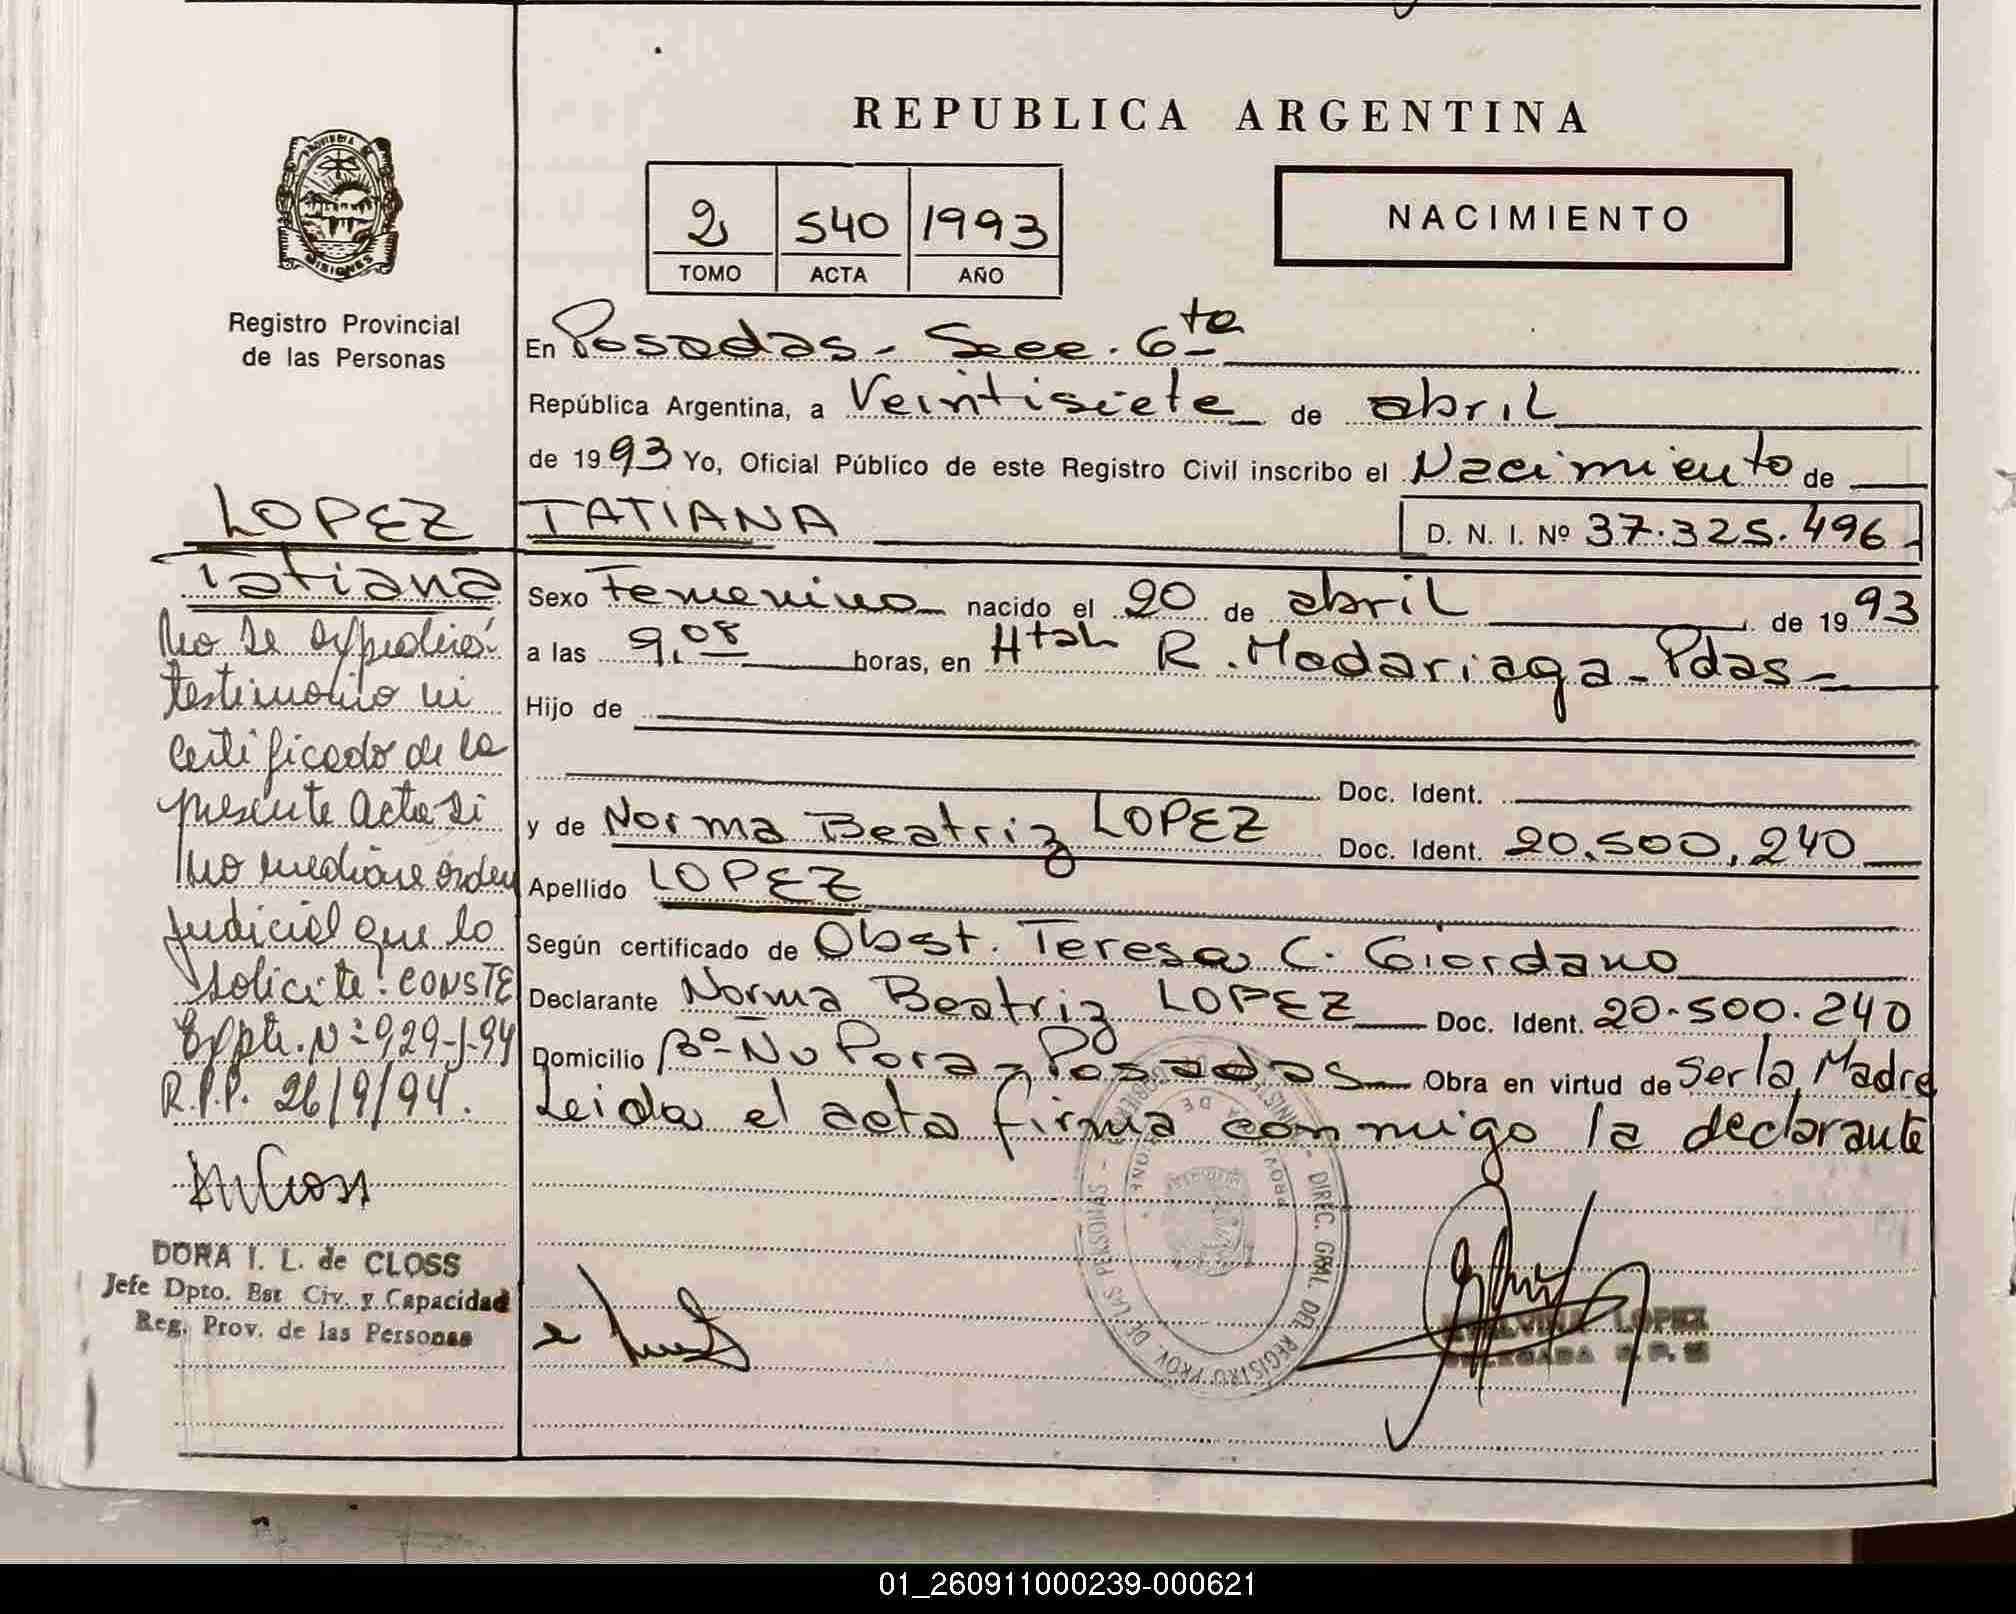 REPUBLICA ARGENTINA
2 540 1993
TOMO ACTA AÑO
NACIMIENTO
PROVINCIA DE
MISIONES
Registro Provincial
de las Personas
En Posadas - Secc. 6ta
República Argentina, a Veintisiete de abril
de 1993 Yo, Oficial Público de este Registro Civil inscribo el Nacimiento de
TATIANA D. N. I. Nº 37.325.496
Sexo Femenino nacido el 20 de abril de 1993
a las 9,08 horas, en Htal R. Madariaga - Pdas -
Hijo de
Doc. Ident.
y de Norma Beatriz LOPEZ Doc. Ident. 20.500.240
Apellido LOPEZ
Según certificado de Obst. Teresa C. Giordano
Declarante Norma Beatriz LOPEZ Doc. Ident. 20.500.240
Domicilio Bº Ñu Pora - Posadas Obra en virtud de Ser la Madre
Leida el acta firma conmigo la declarante
LOPEZ
Tatiana
No se expedirá
testimonio ni
certificado de la
presente Acta si
no mediare orden
judicial que lo
solicite: CONSTE
Expte. Nº 929-J-94
R.P.P. 26/9/94.
DORA I. L. de CLOSS
Jefe Dpto. Est Civ. y Capacidad
Reg. Prov. de las Personas
DIREC. GRAL. DEL REGISTRO PROV. DE LAS PERSONAS
LOPEZ
DELEGADA
01_260911000239-000621